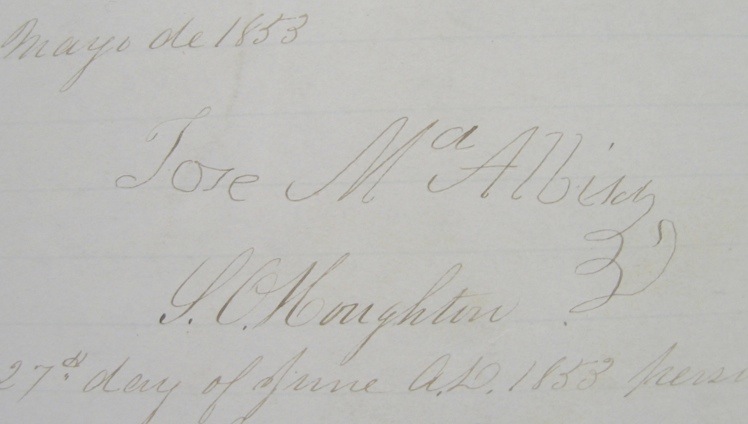 Mayo de 1853
Jose Mª Alviso
S. O. Houghton
27th day of June A.D. 1853